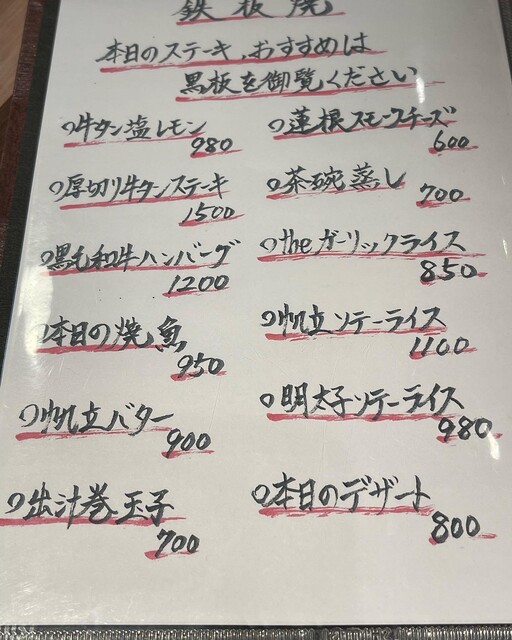 鉄板焼
本日のステーキ、おすすめは
黒板を御覧ください
○牛タン塩レモン
980
○厚切り牛タンステーキ
1500
○黒毛和牛ハンバーグ
1200
○本日の焼魚
950
○帆立バター
900
○出汁巻玉子
700
○蓮根スモークチーズ
600
○茶碗蒸し
700
○theガーリックライス
850
○帆立ソテーライス
1100
○明太子ソテーライス
980
○本日のデザート
800